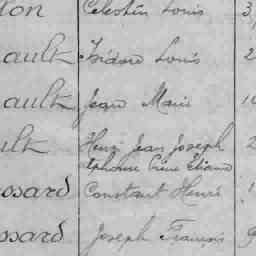 ton Celestin Louis 3
ault Isidore Louis 2
ault Jean Marie 1
ult Henri Jean Joseph 2
Alphonse Pierre Etienne
ossard Constant Henri 1
ssard Joseph François 9